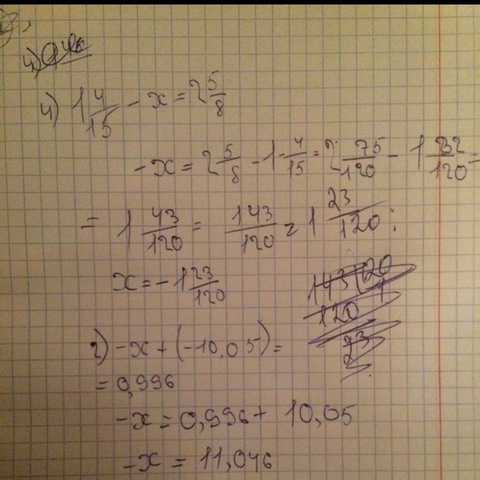 4) 1 4/15 - x = 2 5/8
-x = 2 5/8 - 1 4/15 = 2 75/120 - 1 32/120 =
= 1 43/120 = 143/120 = 1 23/120;
x = -1 23/120
2) -x + (-10,05) =
= 0,996
-x = 0,996 + 10,05
-x = 11,046